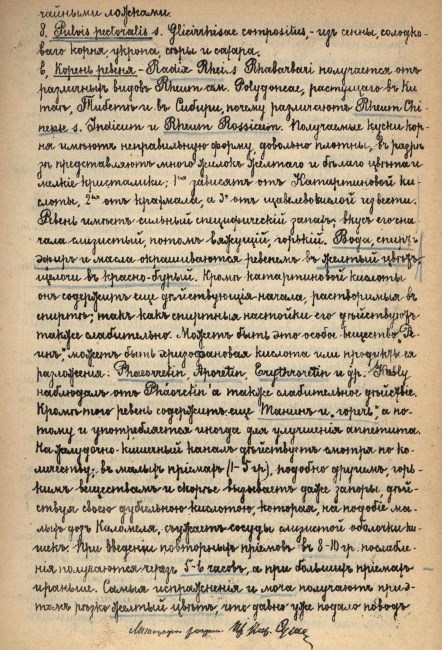 чайными ложками.
8. Pulvis pectoralis s. Glicirrhisae compositus - изъ сенны, солодко-
ваго корня укропа, серы и сахара.
в. Корень ревеня - Radix Rhei s. Rhabarbari получается отъ
различныхъ видовъ Rheum сем. Polygoneae, растущаго въ Ки-
таѣ, Тибетѣ и въ Сибири, почему различаютъ Rheum Chi-
nense s. Indicum и Rheum Rossicum. Получаемые куски кор-
ня имѣютъ неправильную форму, довольно плотны, въ разрѣ-
зѣ представляютъ много жилокъ желтаго и бѣлаго цвѣта и
мелкіе кристалики; 1ые зависятъ отъ Катартиновой ки-
слоты, 2ые отъ крахмала, а 3и отъ щавелевокислой извести.
Ревень имѣетъ сильный специфическій запахъ; вкусъ его сна-
чала слизистый, потомъ вяжущій, горькій. Вода, спиртъ,
эфиръ и масла окрашиваются ревенемъ въ желтый цвѣтъ,
щелочи въ красно-бурый. Кромѣ катартиновой кислоты
онъ содержитъ еще дѣйствующія начала, растворимыя въ
спиртѣ; такъ какъ спиртныя настойки его дѣйствуютъ
также слабительно. Можетъ быть это особое вещество "Ре-
инъ", можетъ быть хризофановая кислота или продукты ея
разложенія: Phaeorretin, Aporetin, Erytroretin и др.
наблюдалъ отъ Phaoretin'а также слабительное дѣйствіе.
Кромѣ того ревень содержитъ еще Танинъ и "горечь" а по-
тому и употребляется иногда для улучшенія аппетита.
На желудочно-кишечный каналъ дѣйствуетъ смотря по ко-
личеству; въ малыхъ пріемахъ (1-5 гр), подобно другимъ, горь-
кимъ веществамъ и скорѣе вызываетъ даже запоры, дѣй-
ствуя своею дубильною кислотою, которая, на подобіе ма-
лыхъ дозъ Каломеля, съужаетъ сосуды слизистой оболочки ки-
шекъ. При введеніи повторныхъ пріемовъ въ 8-10 гр. послабле-
нія получаются чрезъ 5-6 часовъ, а при большихъ пріемахъ
и раньше. Самыя испражненія и моча получаютъ при э-
томъ рѣзко желтый цвѣтъ, что давно уже подало поводъ